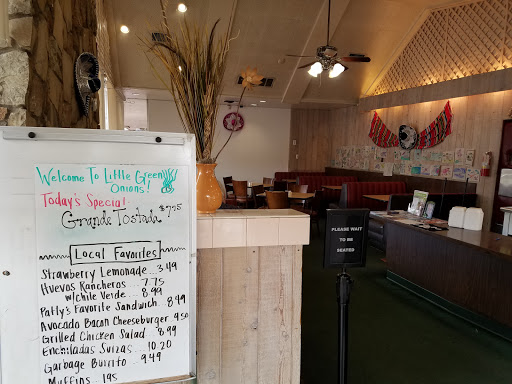 Welcome To Little Green
Onions!
Today's Special
Grande Tostada $7.75
Local Favorites
Strawberry Lemonade... 3.49
Huevos Rancheros... 7.75
w/Chile Verde... 8.99
Patty's Favorite Sandwich... 8.49
Avocado Bacon Cheeseburger 9.50
Grilled Chicken Salad... 8.99
Enchiladas Suizas... 10.20
Garbage Burrito... 9.49
Muffins... 1.95
PLEASE WAIT
TO BE
SEATED